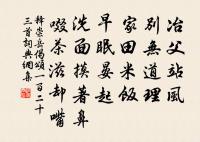 冶父站風
別無道理
家田米飯
早眠晏起
洗面摸著鼻
啜茶滋却嘴
釋崇岳偈頌一百二十
三首詞典網集